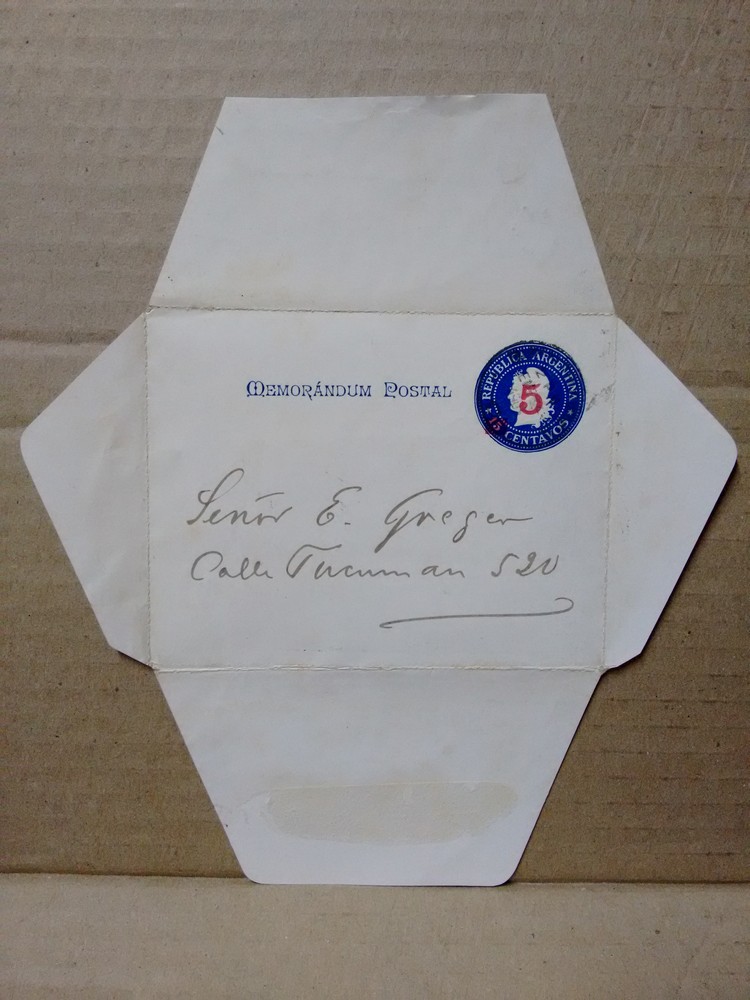 MEMORÁNDUM POSTAL
REPÚBLICA ARGENTINA
5
15 CENTAVOS
Señor E. Greger
Calle Tucuman 520